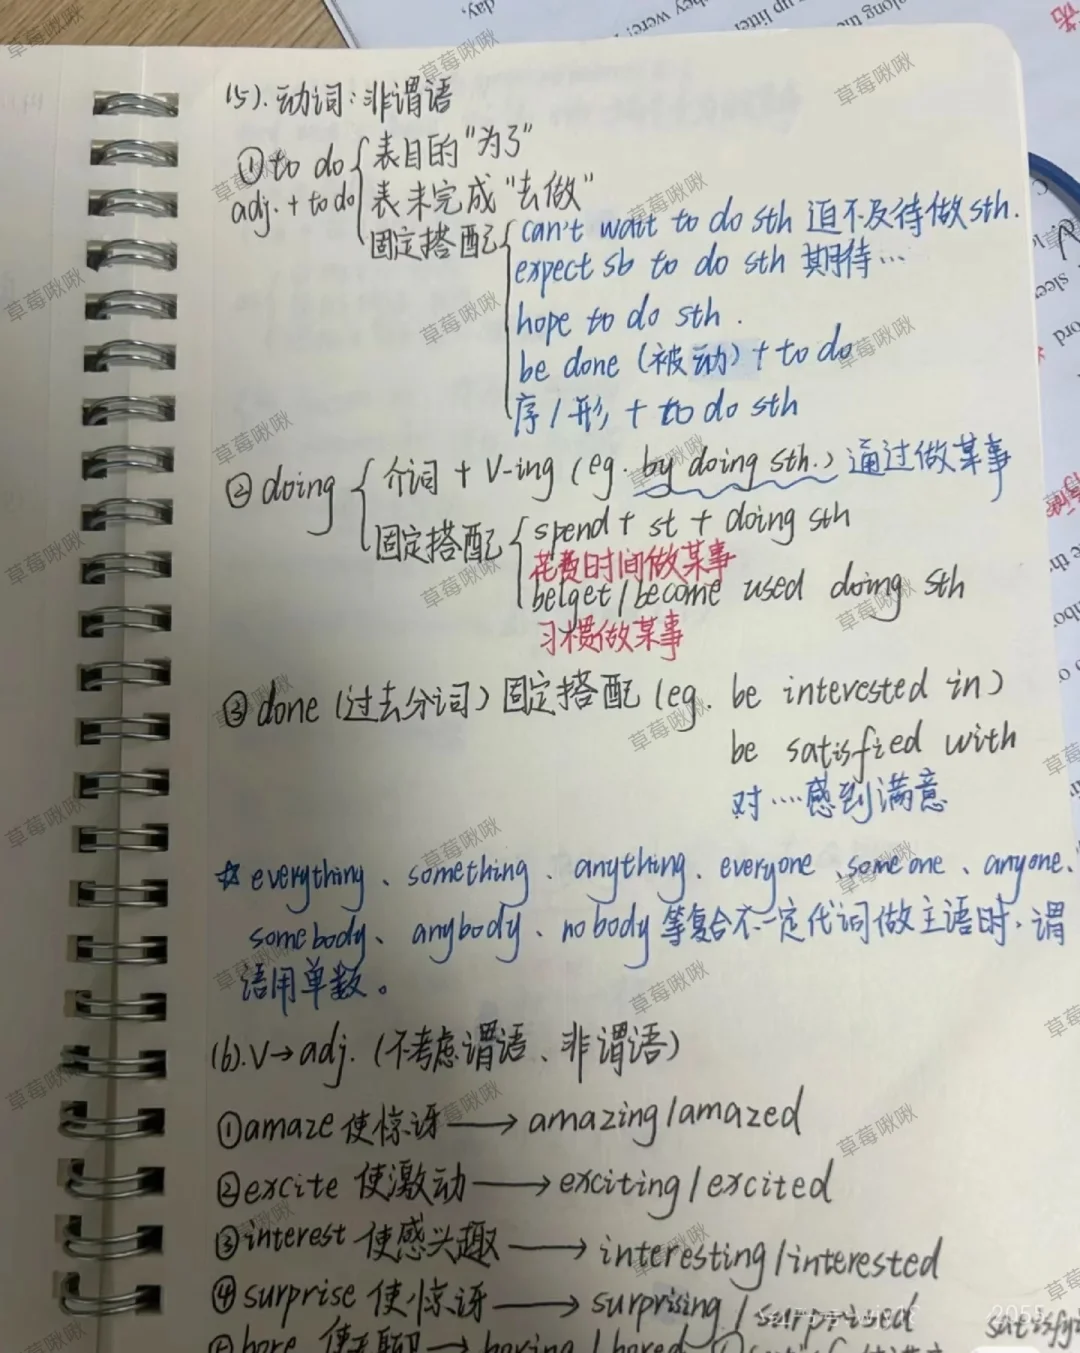 (5). 动词：非谓语
① to do { 表目的"为了"
adj. + to do 表未完成"去做"
固定搭配 { can't wait to do sth 迫不及待做sth.
expect sb to do sth 期待…
hope to do sth.
be done (被动) + to do
序/形 + to do sth
② doing { 介词 + V-ing (eg. by doing sth.) 通过做某事
固定搭配 { spend + st + doing sth
花费时间做某事
be/get/become used doing sth
习惯做某事
③ done (过去分词) 固定搭配 (eg. be interested in)
be satisfied with
对….感到满意
☆ everything、something、anything、everyone、someone、anyone、
somebody、anybody、nobody等复合不定代词做主语时，谓
语用单数。
(6). V→adj. (不考虑谓语、非谓语)
① amaze 使惊讶 → amazing/amazed
② excite 使激动 → exciting/excited
③ interest 使感兴趣 → interesting/interested
④ surprise 使惊讶 → surprising/surprised
bore 使无聊 → boring/bored
草莓啾啾